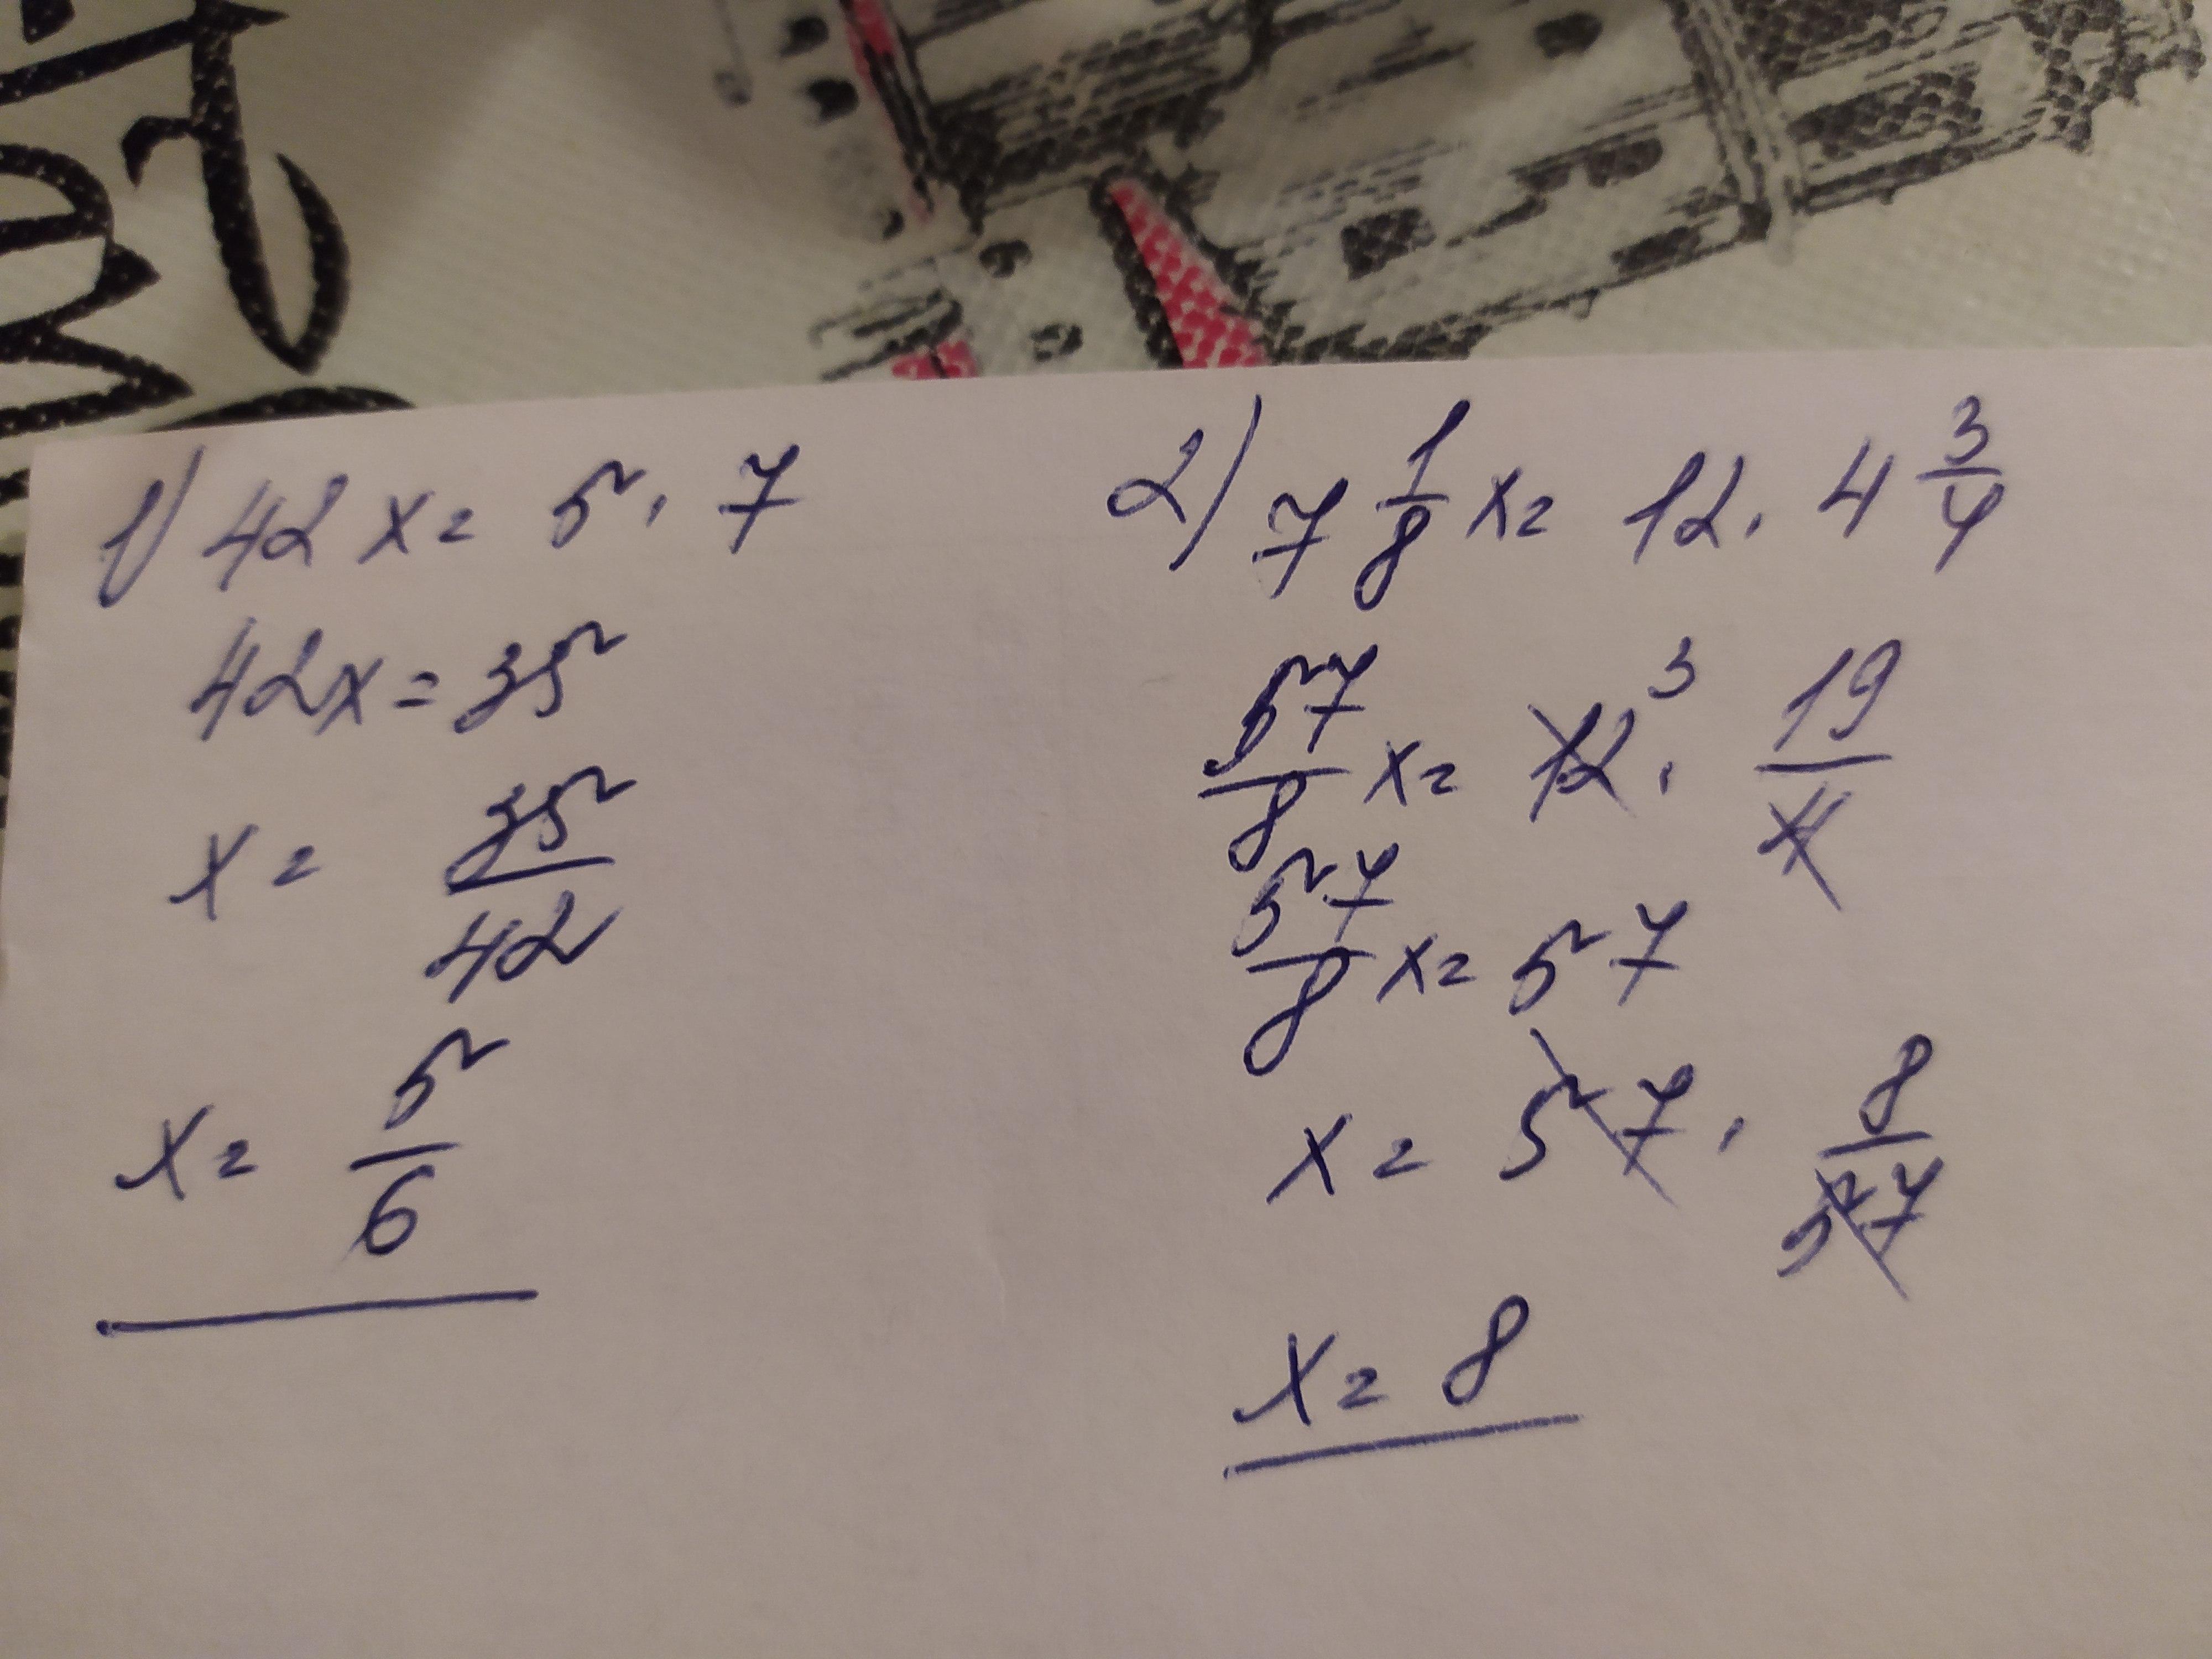 1) 42x = 5 · 7
42x = 35
x = 35/42
x = 5/6
2) 7 1/8 x = 12 · 4 3/4
57/8 x = 12 3 · 19/4
57/8 x = 57
x = 57 · 8/57
x = 8